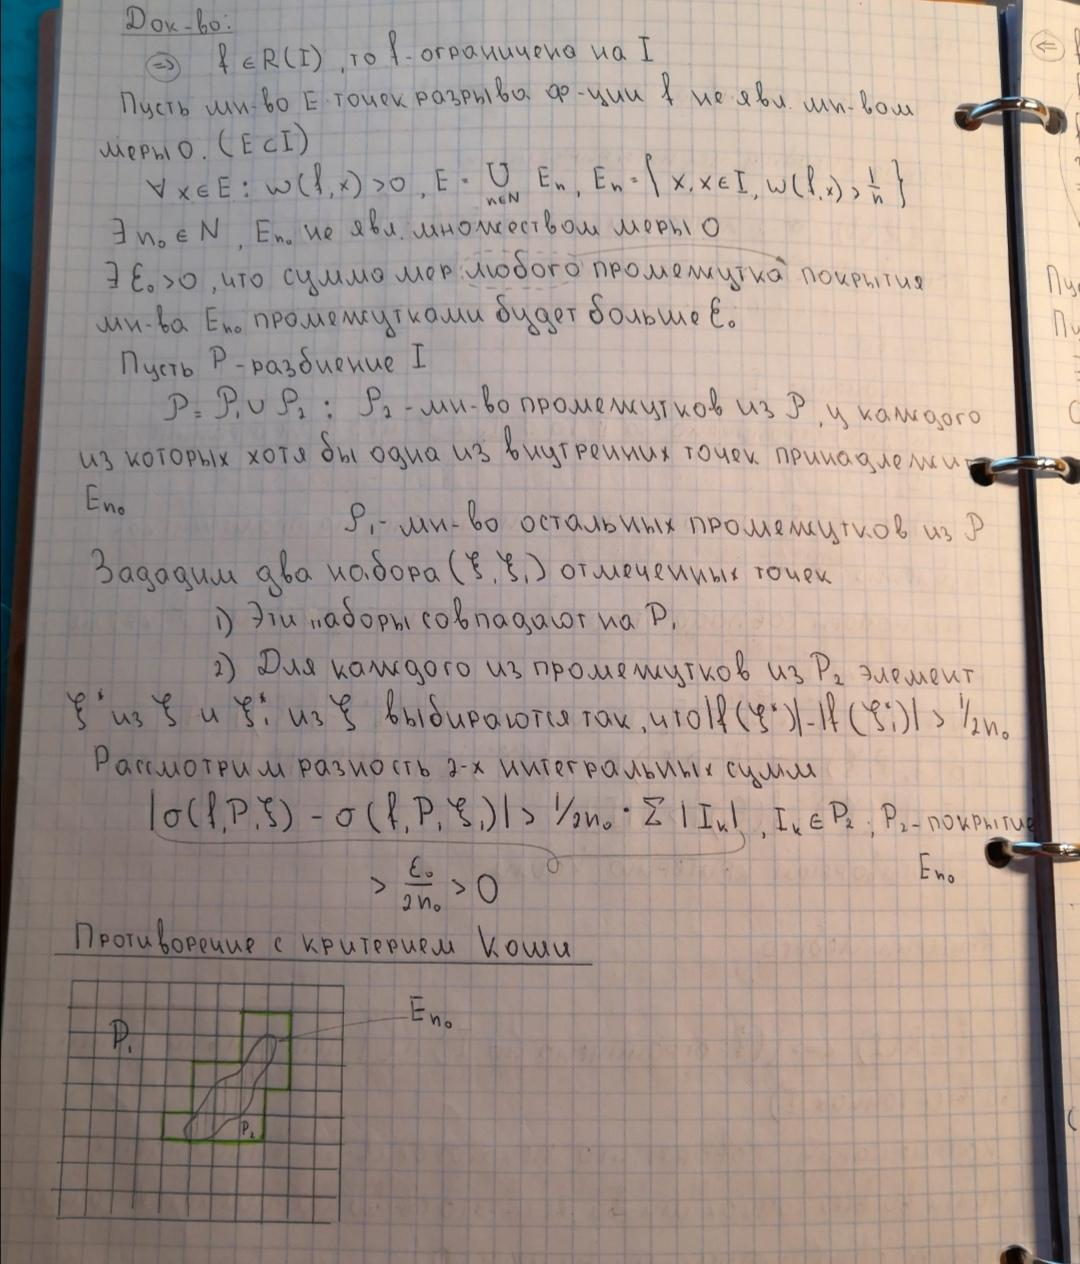 Док-во:
⇒ f ∈ R(I), то f-ограничена на I
Пусть мн-во E точек разрыва ф-ции f не явл. мн-вом
меры 0. (E ⊂ I)
∀ x ∈ E : w(f,x) > 0, E = ⋃ Eₙ, Eₙ = { x, x ∈ I, w(f,x) > 1/n }
n∈N
∃ n₀ ∈ N, Eₙ₀ не явл. множеством меры 0
∃ ε₀ > 0, что сумма мер любого промежутка покрытия
мн-ва Eₙ₀ промежутками будет больше ε₀
Пусть P-разбиение I
P = P₁ ∪ P₂ : P₂ - мн-во промежутков из P, у каждого
из которых хотя бы одна из внутренних точек принадлежит
Eₙ₀
P₁ - мн-во остальных промежутков из P
Зададим два набора (ξ, ξ₁) отмеченных точек
1) Эти наборы совпадают на P₁
2) Для каждого из промежутков из P₂ элемент
ξ* из ξ и ξ₁* из ξ выбираются так, что |f(ξ*)| - |f(ξ₁*)| > 1/2n₀
Рассмотрим разность 2-х интегральных сумм
|σ(f,P,ξ) - σ(f,P,ξ₁)| > 1/2n₀ · Σ |Iₖ|, Iₖ ∈ P₂; P₂-покрытие
Eₙ₀
> ε₀/2n₀ > 0
Противорение с критерием Коши
Eₙ₀
P₁
P₂
⇐